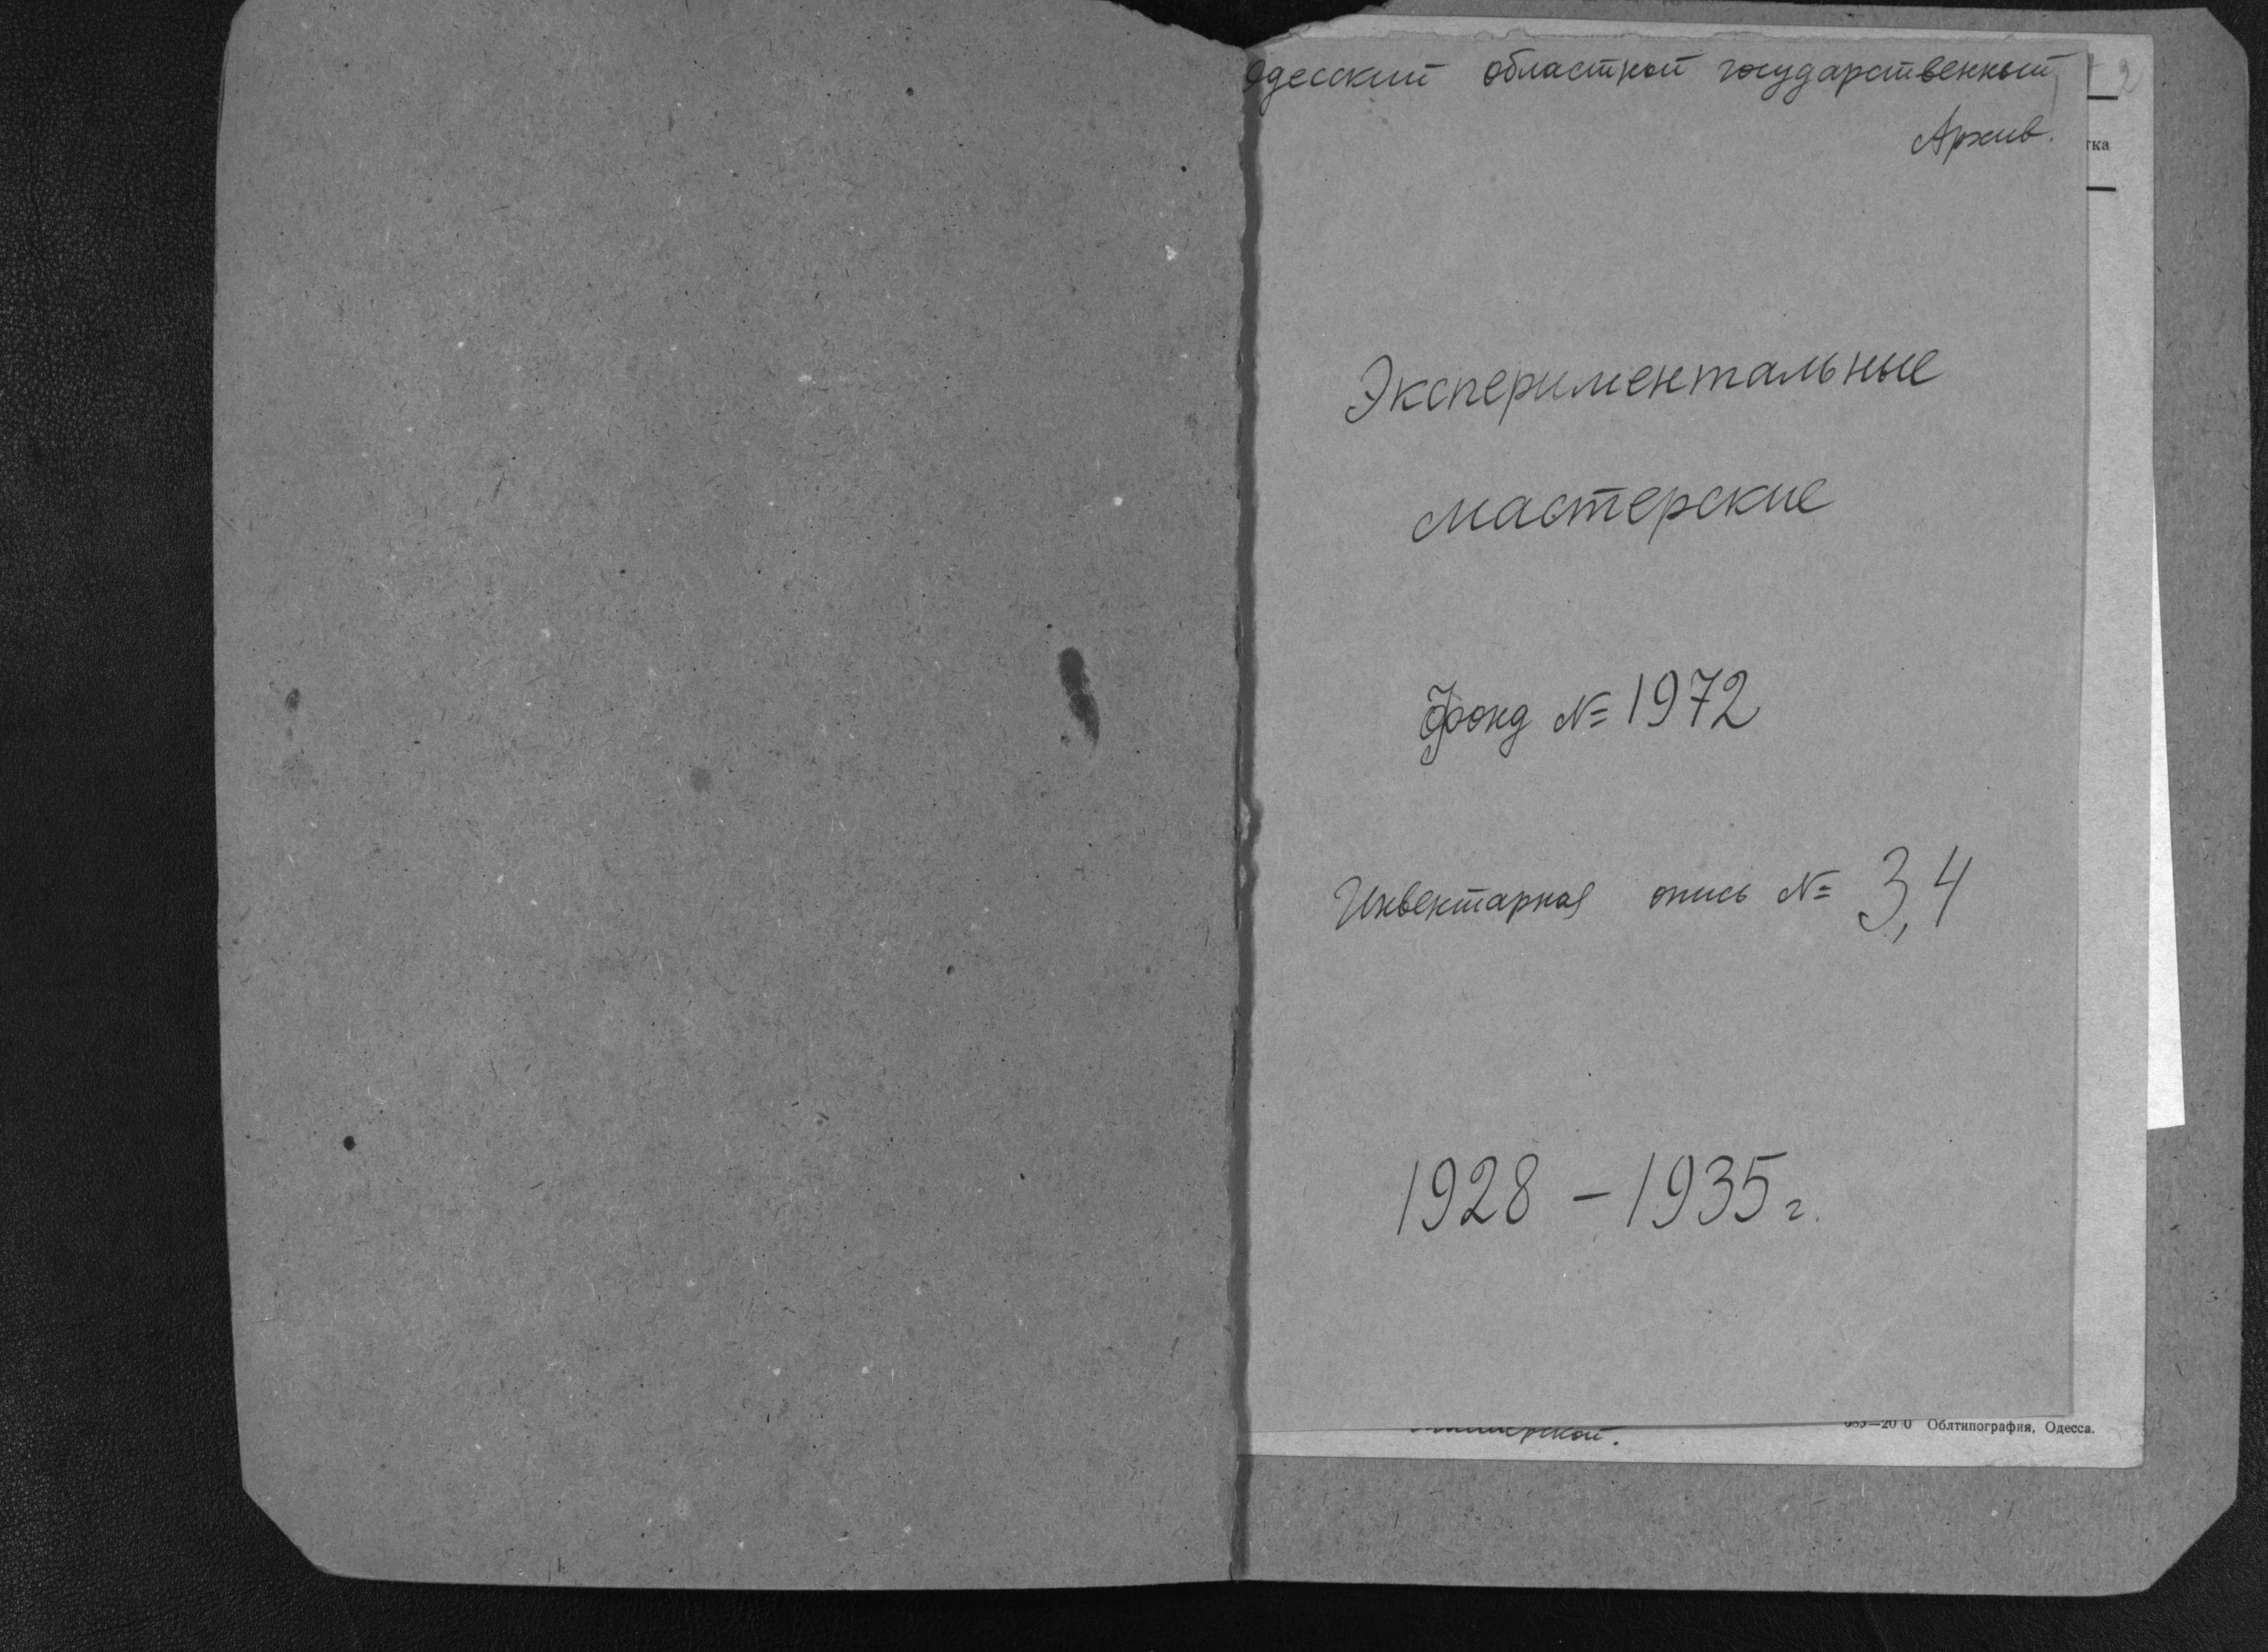 Одесский областной государственный
Архив.
2
тка
Экспериментальные
мастерские
Фонд № 1972
Инвентарная опись № 3,4
1928 – 1935 г.
Облтипография, Одесса.